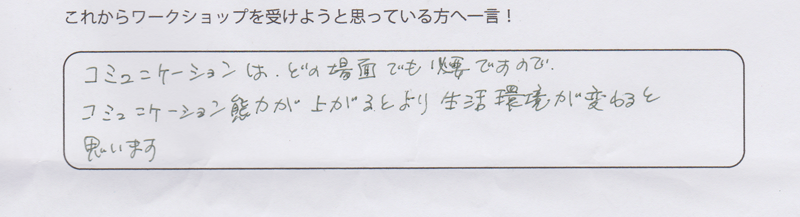 これからワークショップを受けようと思っている方へ一言！
コミュニケーションは、どの場面でも必要ですので、
コミュニケーション態力が上がるとより生活環境が変わると
思います